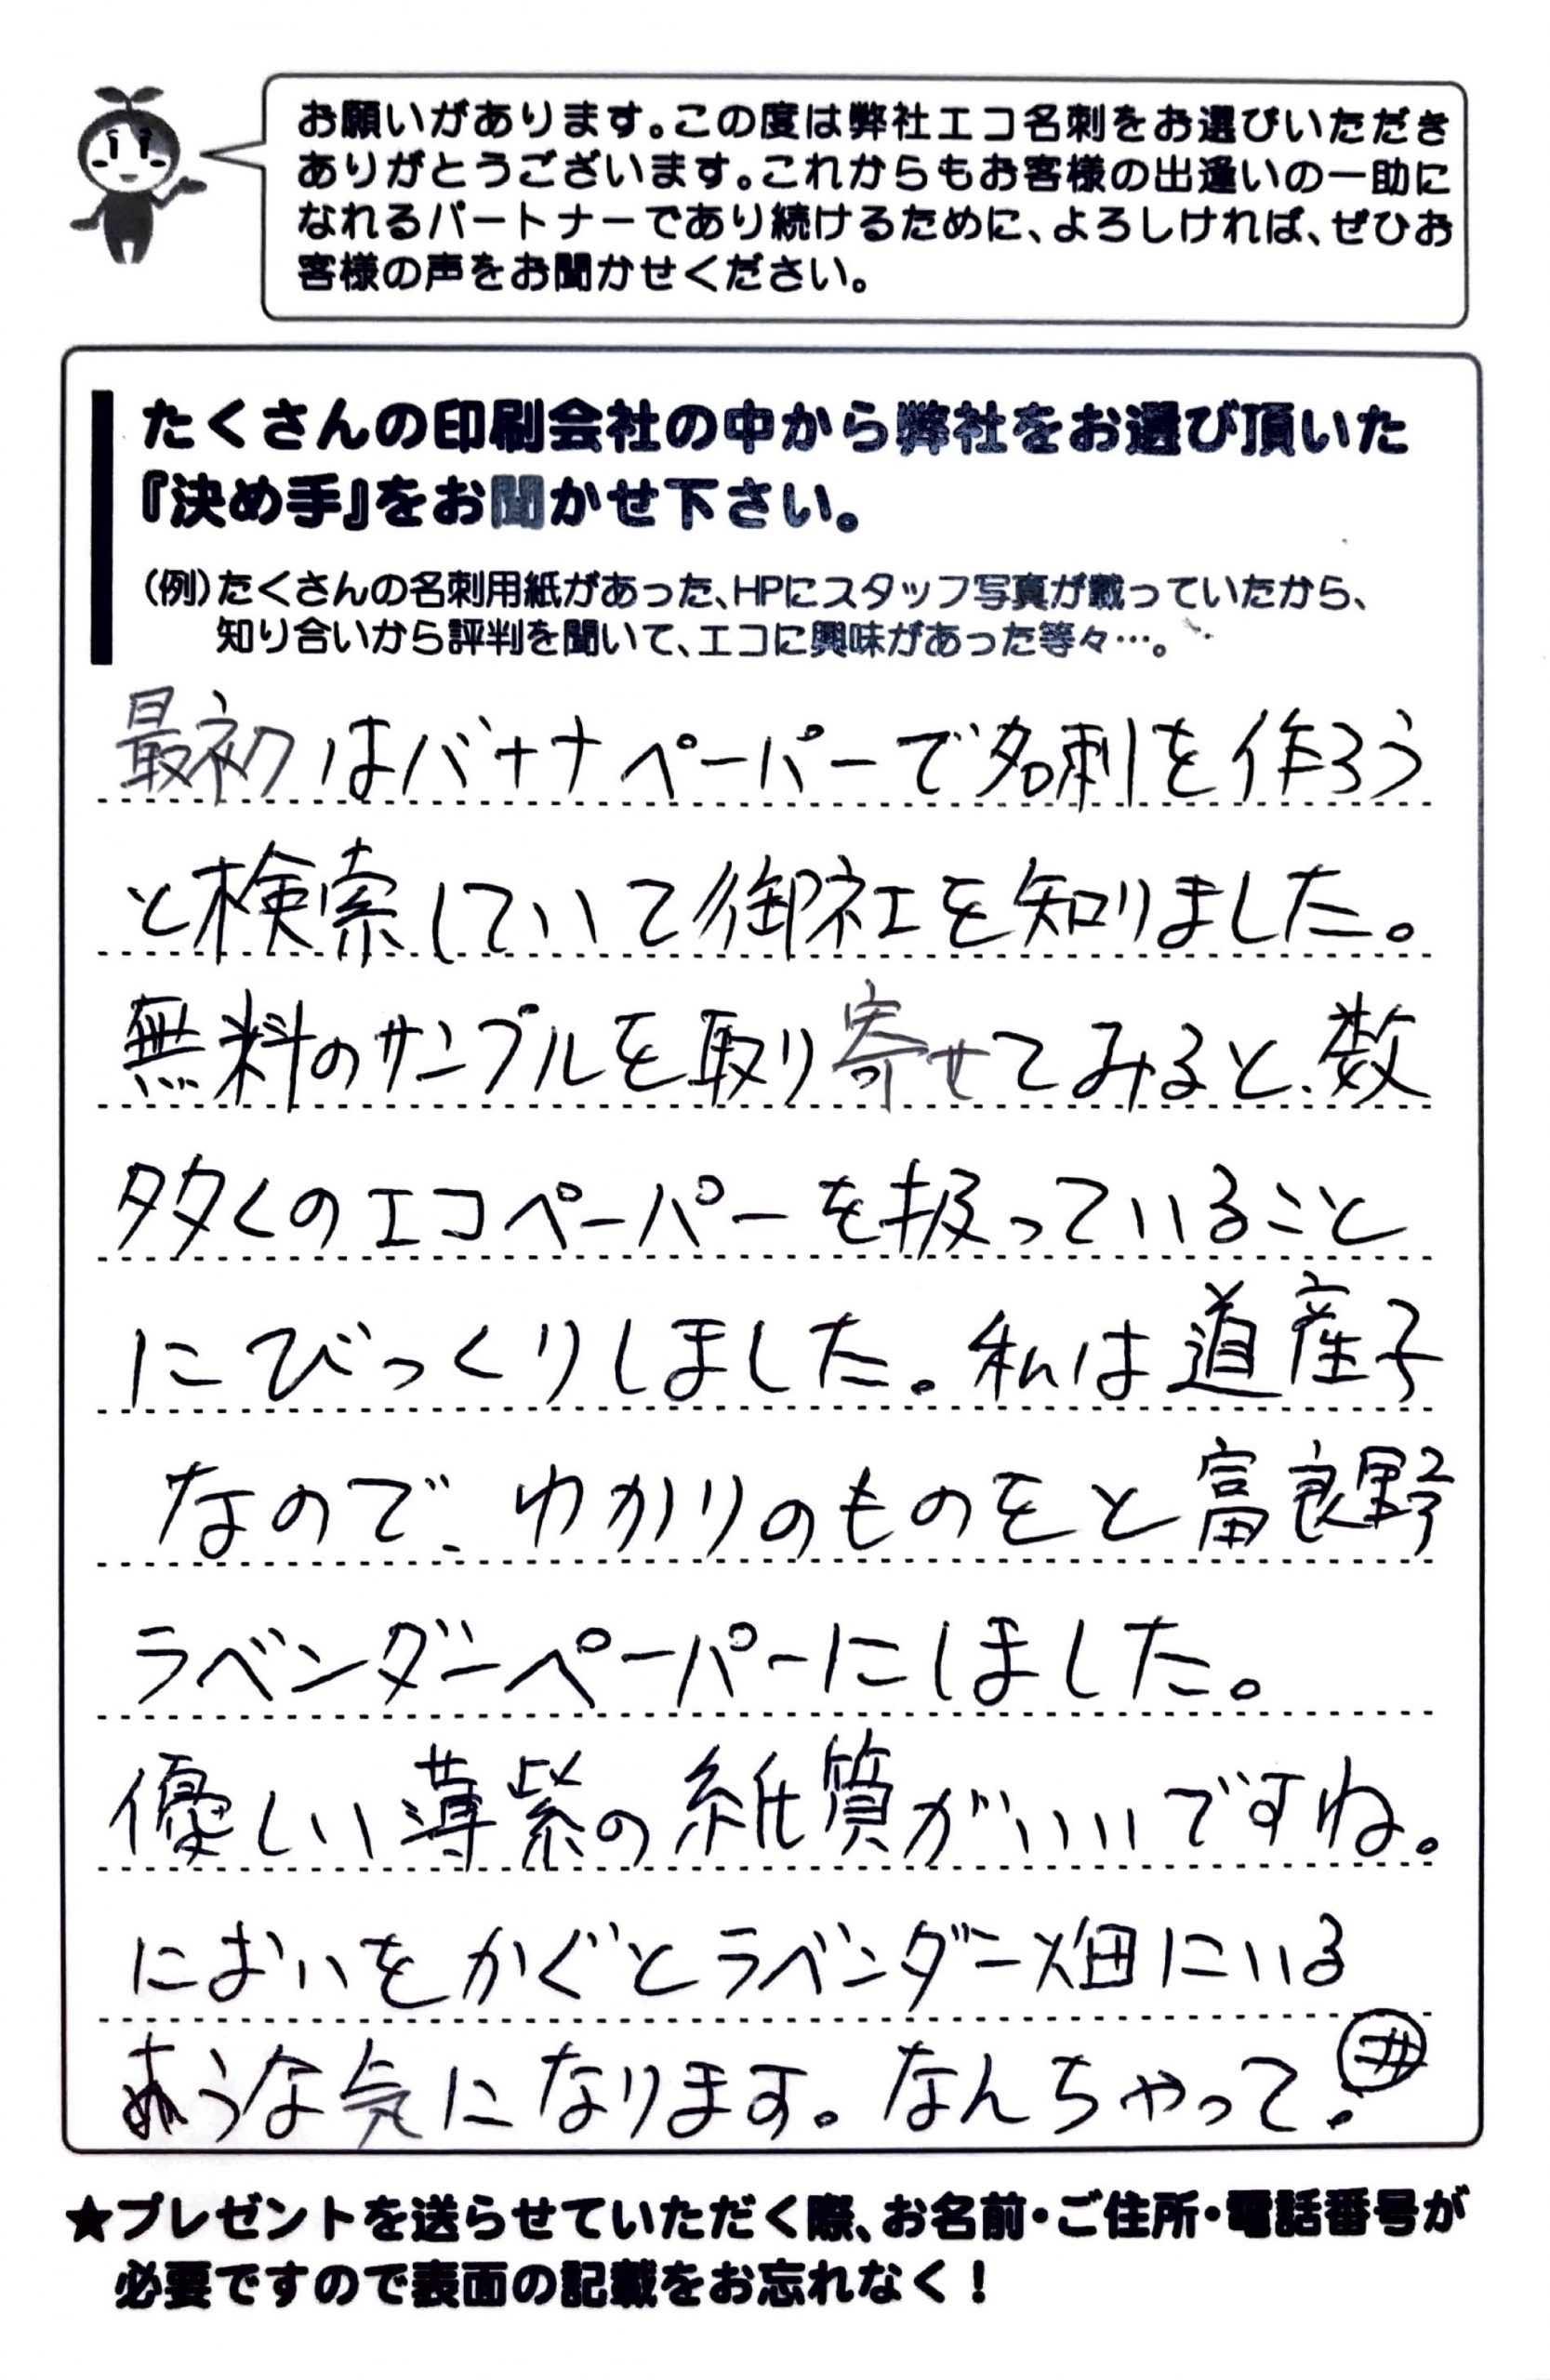 お願いがあります。この度は弊社エコ名刺をお選びいただき
ありがとうございます。これからもお客様の出逢いの一助に
なれるパートナーであり続けるために、よろしければ、ぜひお
客様の声をお聞かせください。
たくさんの印刷会社の中から弊社をお選び頂いた
『決め手』をお聞かせ下さい。
(例)たくさんの名刺用紙があった、HPにスタッフ写真が載っていたから、
知り合いから評判を聞いて、エコに興味があった等々…。
最初はバナナペーパーで名刺を作ろう
と検索していて御社を知りました。
無料のサンプルを取り寄せてみると、数
多くのエコペーパーを扱っていること
にびっくりしました。私は道産子
なので、ゆかりのものをと富良野
ラベンダーペーパーにしました。
優しい薄紫の紙質がいいですね。
においをかぐとラベンダー畑にいる
ような気になります。なんちゃって!
★プレゼントを送らせていただく際、お名前・ご住所・電話番号が
必要ですので表面の記載をお忘れなく!